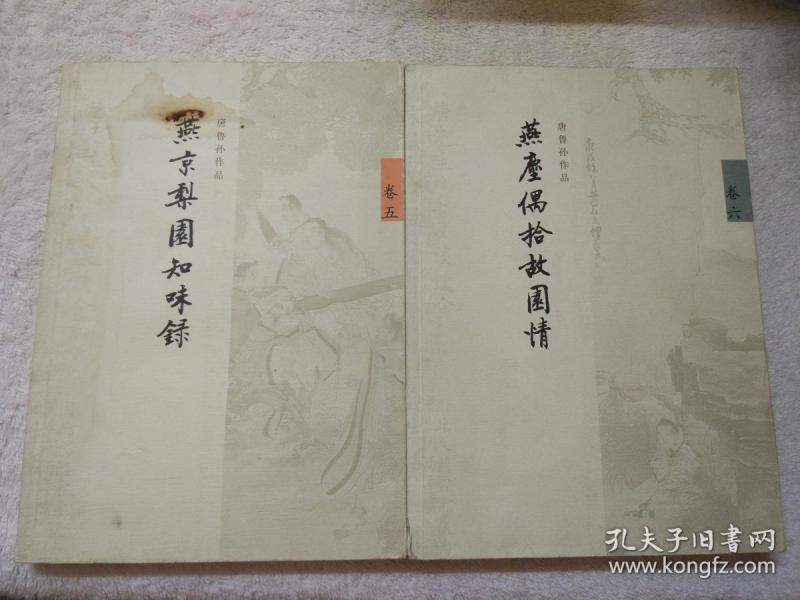 唐鲁孙作品
燕京梨園知味録
卷五
唐鲁孙作品
燕塵偶拾故園情
卷六
孔夫子旧书网
www.kongfz.com